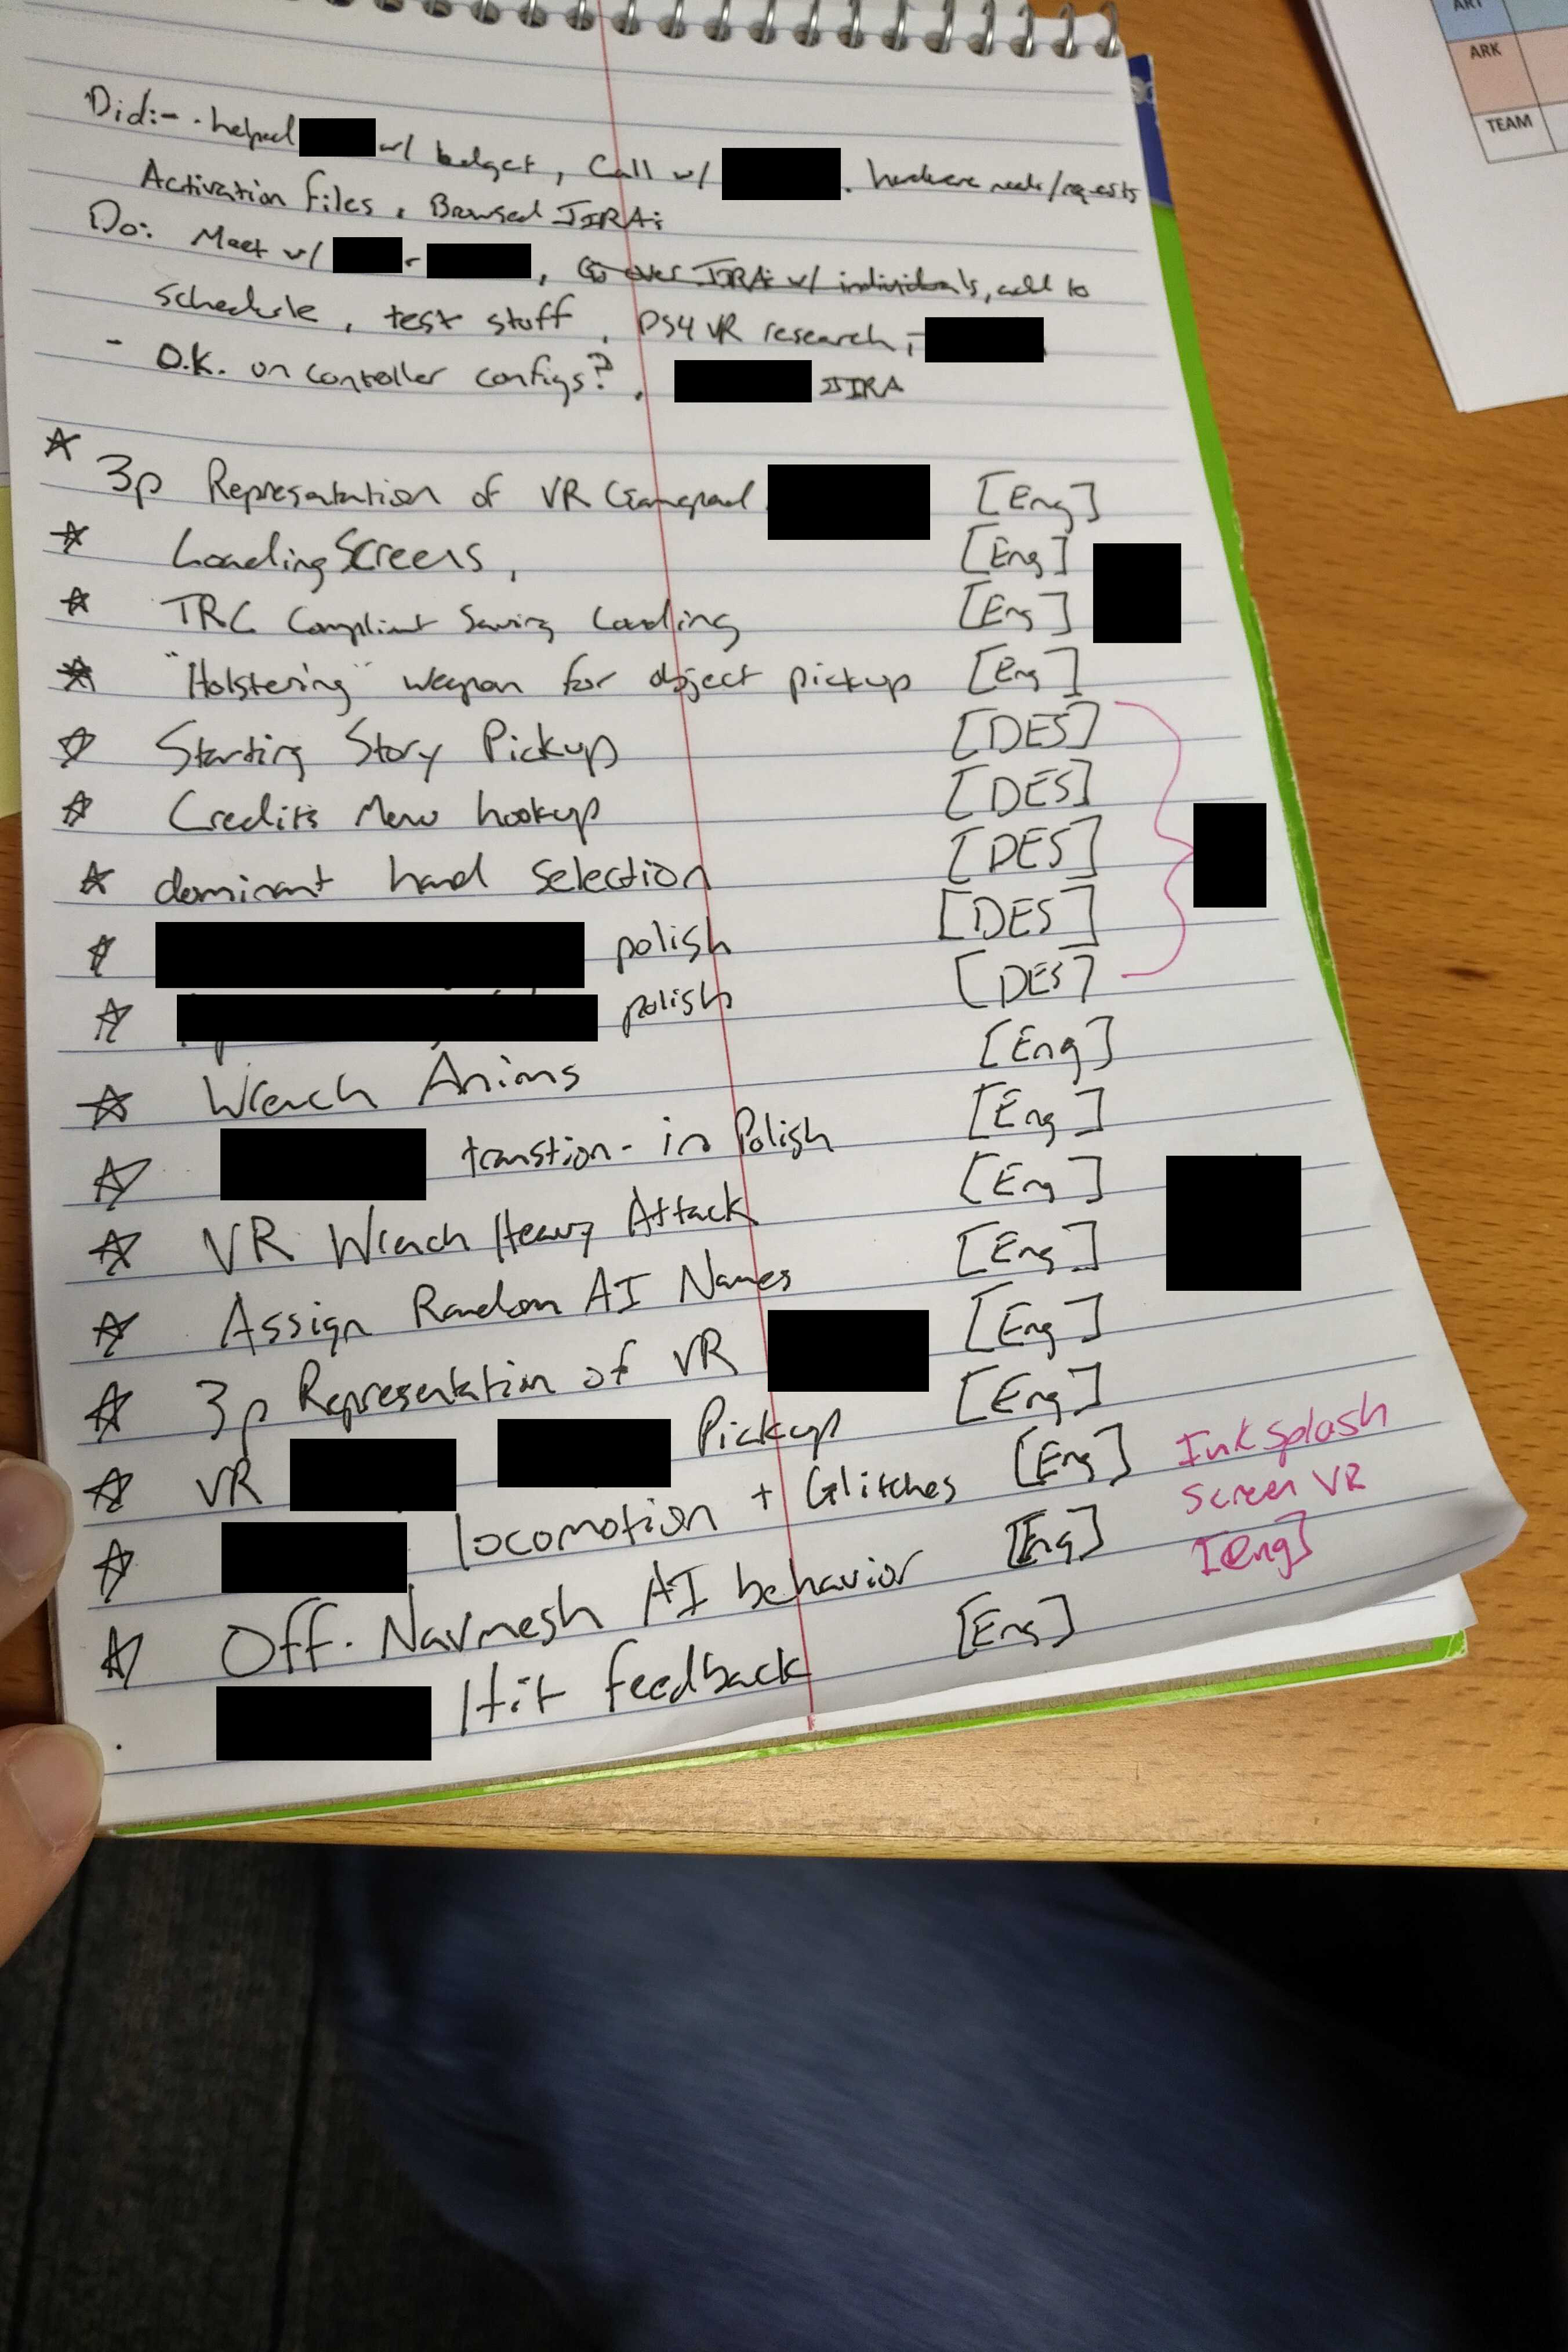 Did:- . helped w/ budget, Call w/ . hardware needs/requests
Activation files, Browsed JIRA:
Do: Meet w/ - , Go over JIRA: w/ individuals, add to
schedule, test stuff, PS4 VR research,
- O.K. on controller configs?, JIRA
☆ 3p Representation of VR Gamepad [Eng]
☆ Loading Screens, [Eng]
☆ TRC Compliant Saving Loading [Eng]
☆ "Holstering" weapon for object pickup [Eng]
☆ Starting Story Pickup [DES]
☆ Credits Menu hookup [DES]
☆ dominant hand selection [DES]
☆ polish [DES]
☆ polish [DES]
☆ Wrench Anims [Eng]
☆ transtion-in Polish [Eng]
☆ VR Wrench Heavy Attack [Eng]
☆ Assign Random AI Names [Eng]
☆ 3p Representation of VR [Eng]
☆ VR Pickup [Eng]
☆ locomotion + Glitches [Eng]
☆ Off-Navmesh AI behavior [Eng]
. Hit feedback [Eng]
Ink splash
Screen VR
[Eng]
ART
ARK
TEAM